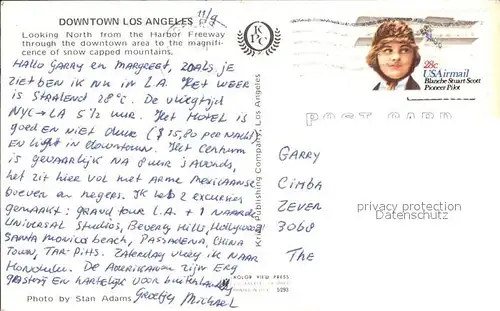 DOWNTOWN LOS ANGELES
11/9
Looking North from the Harbor Freeway
through the downtown area to the magnifi-
cence of snow capped mountains.
HALLO GARRY en MARGREET, ZOALS je
ZIET BEN ik NU in L.A. Het WEER
is STRALEND 28°C. De vliegtijd
NYC→LA 5 1/2 uur. Het HOTEL is
goed EN NIET duur ($15,80 per nacht)
EN ligt in downtown. Het Centrum
is gevaarlijk NA 8 uur 's Avonds,
het zit hier vol met Arme Mexicaanse
boeven en negers. IK heb 2 excursies
gemaakt: grand tour L.A. + 1 NAAR de
Universal Studios, Beverly Hills, Hollywood
SANTA MONICA beach, PASSADENA, CHINA
TOWN, TAR-Pitts. Zaterdag vlieg ik NAAR
Honolulu. De Amerikanen zijn ERg
gastvrij EN hartelijk voor buitenlanders
Groetjes Michael
Photo by Stan Adams
KOLOR VIEW PRESS
Krieg Publishing Company, Los Angeles
KPC
28c
USAirmail
Blanche Stuart Scott
Pioneer Pilot
POST CARD
GARRY
CIMBA
ZEVEN
3068
THE
Privacy protection
akpool.co.uk